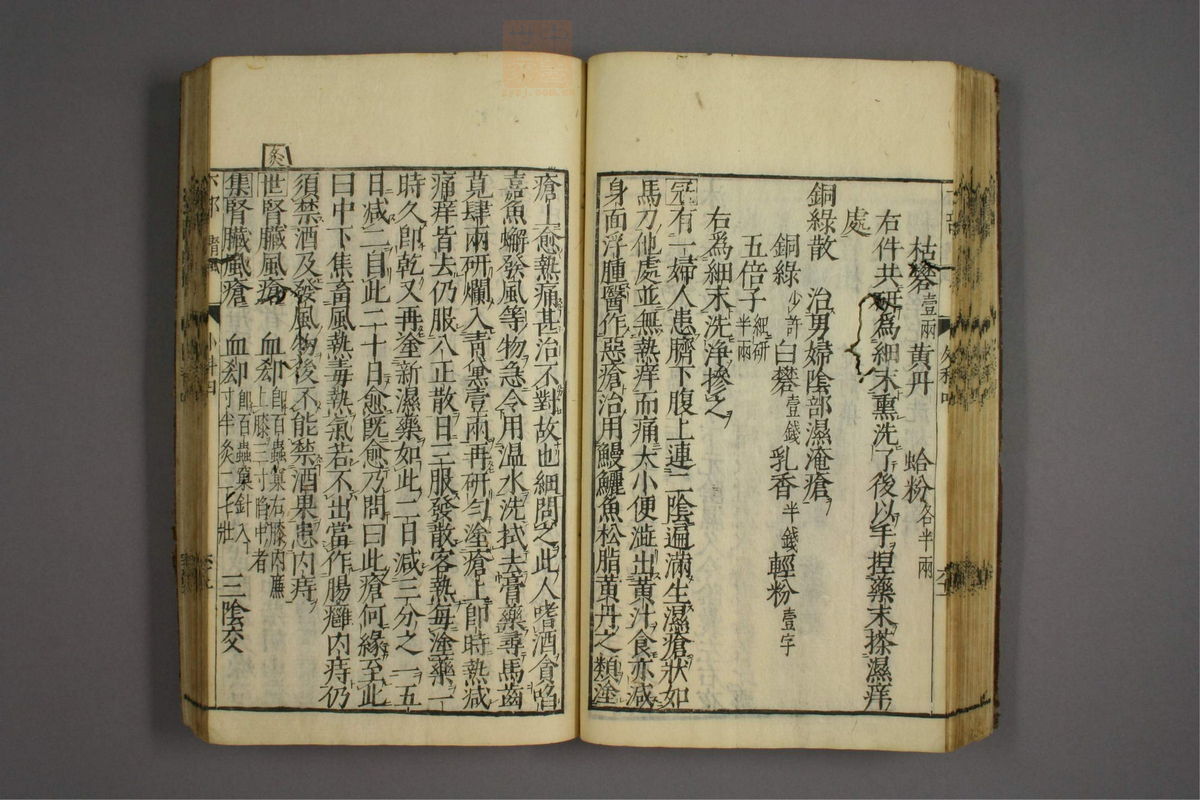 枯礬壹兩黄丹　蛤粉各半兩
右件共研爲細末熏洗了後以手捏藥末搽濕痒
處
銅綠散　治男婦陰部濕淹瘡
銅綠少許白礬壹錢乳香半錢輕粉壹字
五倍子細研半兩
右爲細末洗浄摻之
元有一婦人患臍下腹上連二陰遍滿生濕瘡狀如
馬刀他處並無熱痒而痛大小便澁出黄汁食亦减
身面浮腫醫作惡瘡治用鰻鱺魚松脂黄丹之類塗
瘡上愈熱痛甚治不對故也細問之此人嗜酒貪啗
嘉魚蠏發風等物急令用温水洗拭去膏藥尋馬齒
莧肆兩研爛入青黛壹兩再研勻塗瘡上即時熱减
痛痒皆去仍服八正散日三服發散客熱每塗藥一
時久即乾又再塗新濕藥如此二日减三分之一五
日减二自此二十日愈既愈乃問曰此瘡何緣至此
曰中下焦畜風熱毒熱氣若不出當作腸癰内痔仍
須禁酒及發風物後不能禁酒果患内痔
灸
世腎臟風瘡　血郄即百蟲窠右膝内廉上膝三寸陷中者
集腎臟風瘡　血郄即百蟲窠針入寸半灸二七壯　三陰交